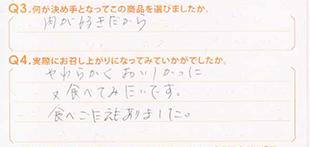 Q3.何が決め手となってこの商品を選びましたか。
肉が好きだから
Q4.実際にお召し上がりになってみていかがでしたか。
やわらかくおいしかった
又食べてみたいです。
食べごたえもありました。